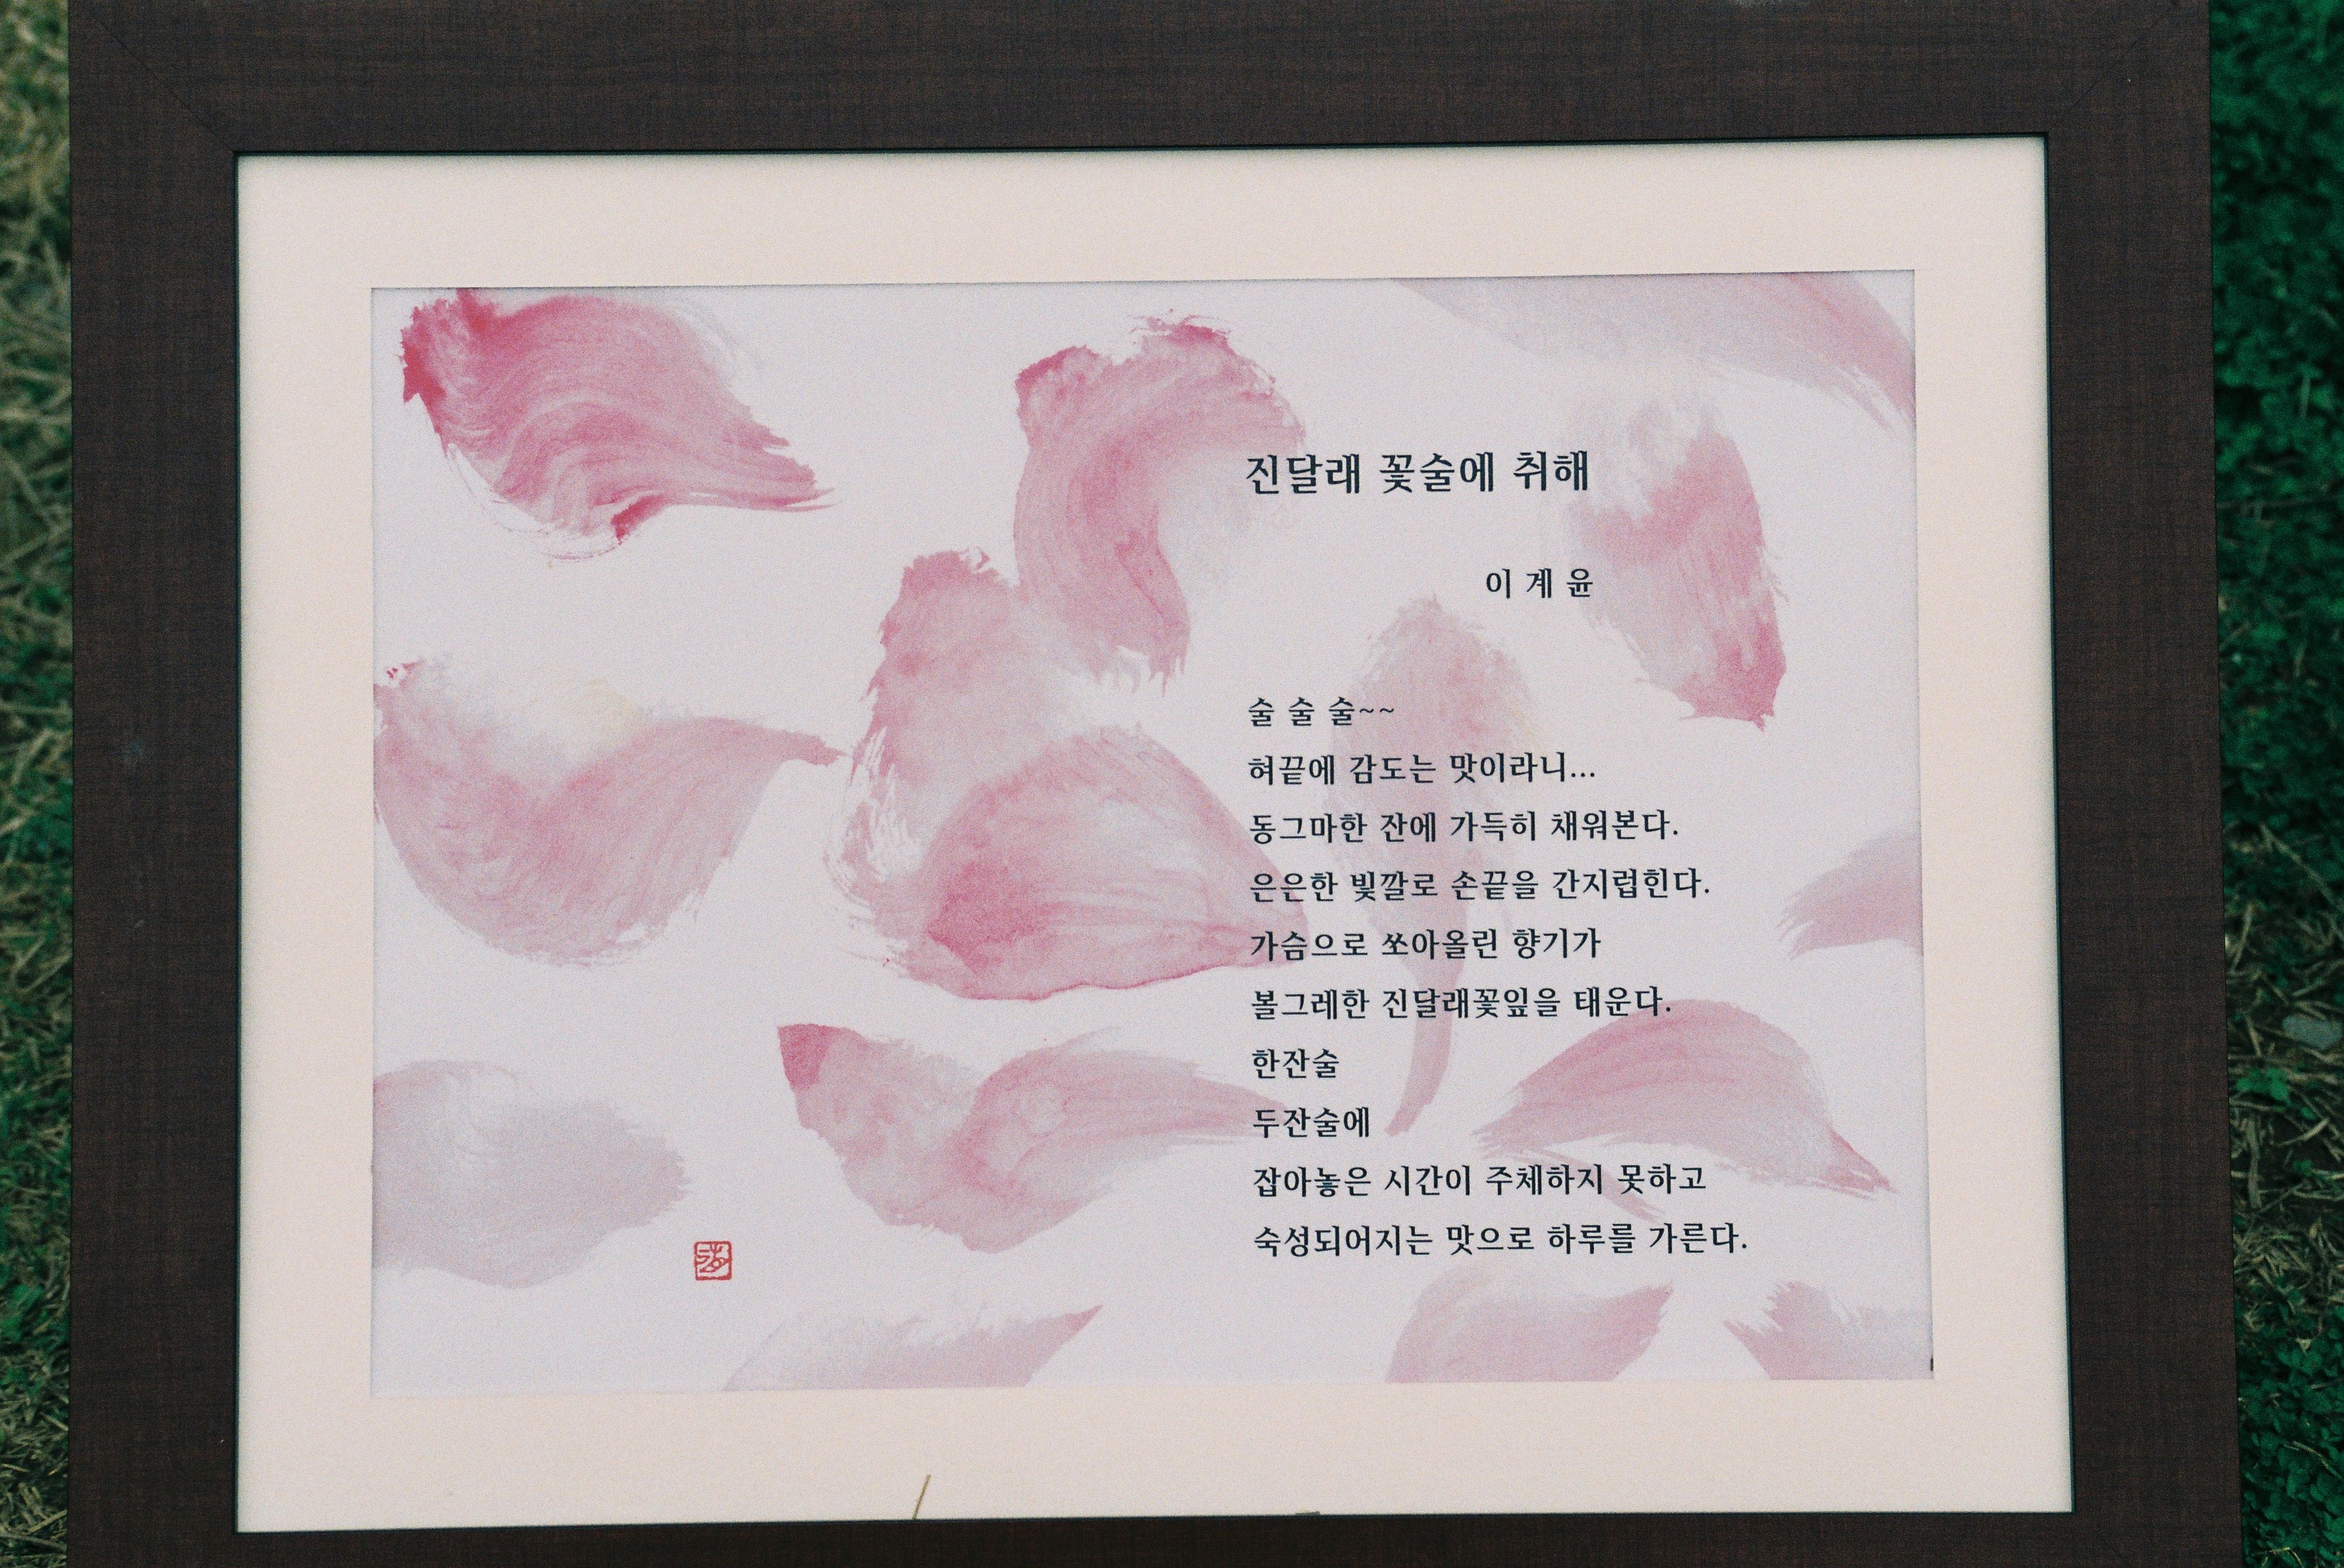 진달래 꽃술에 취해
이 계 윤
술 술 술~~
혀끝에 감도는 맛이라니...
동그마한 잔에 가득히 채워본다.
은은한 빛깔로 손끝을 간지럽힌다.
가슴으로 쏘아올린 향기가
볼그레한 진달래꽃잎을 태운다.
한잔술
두잔술에
잡아놓은 시간이 주체하지 못하고
숙성되어지는 맛으로 하루를 가른다.